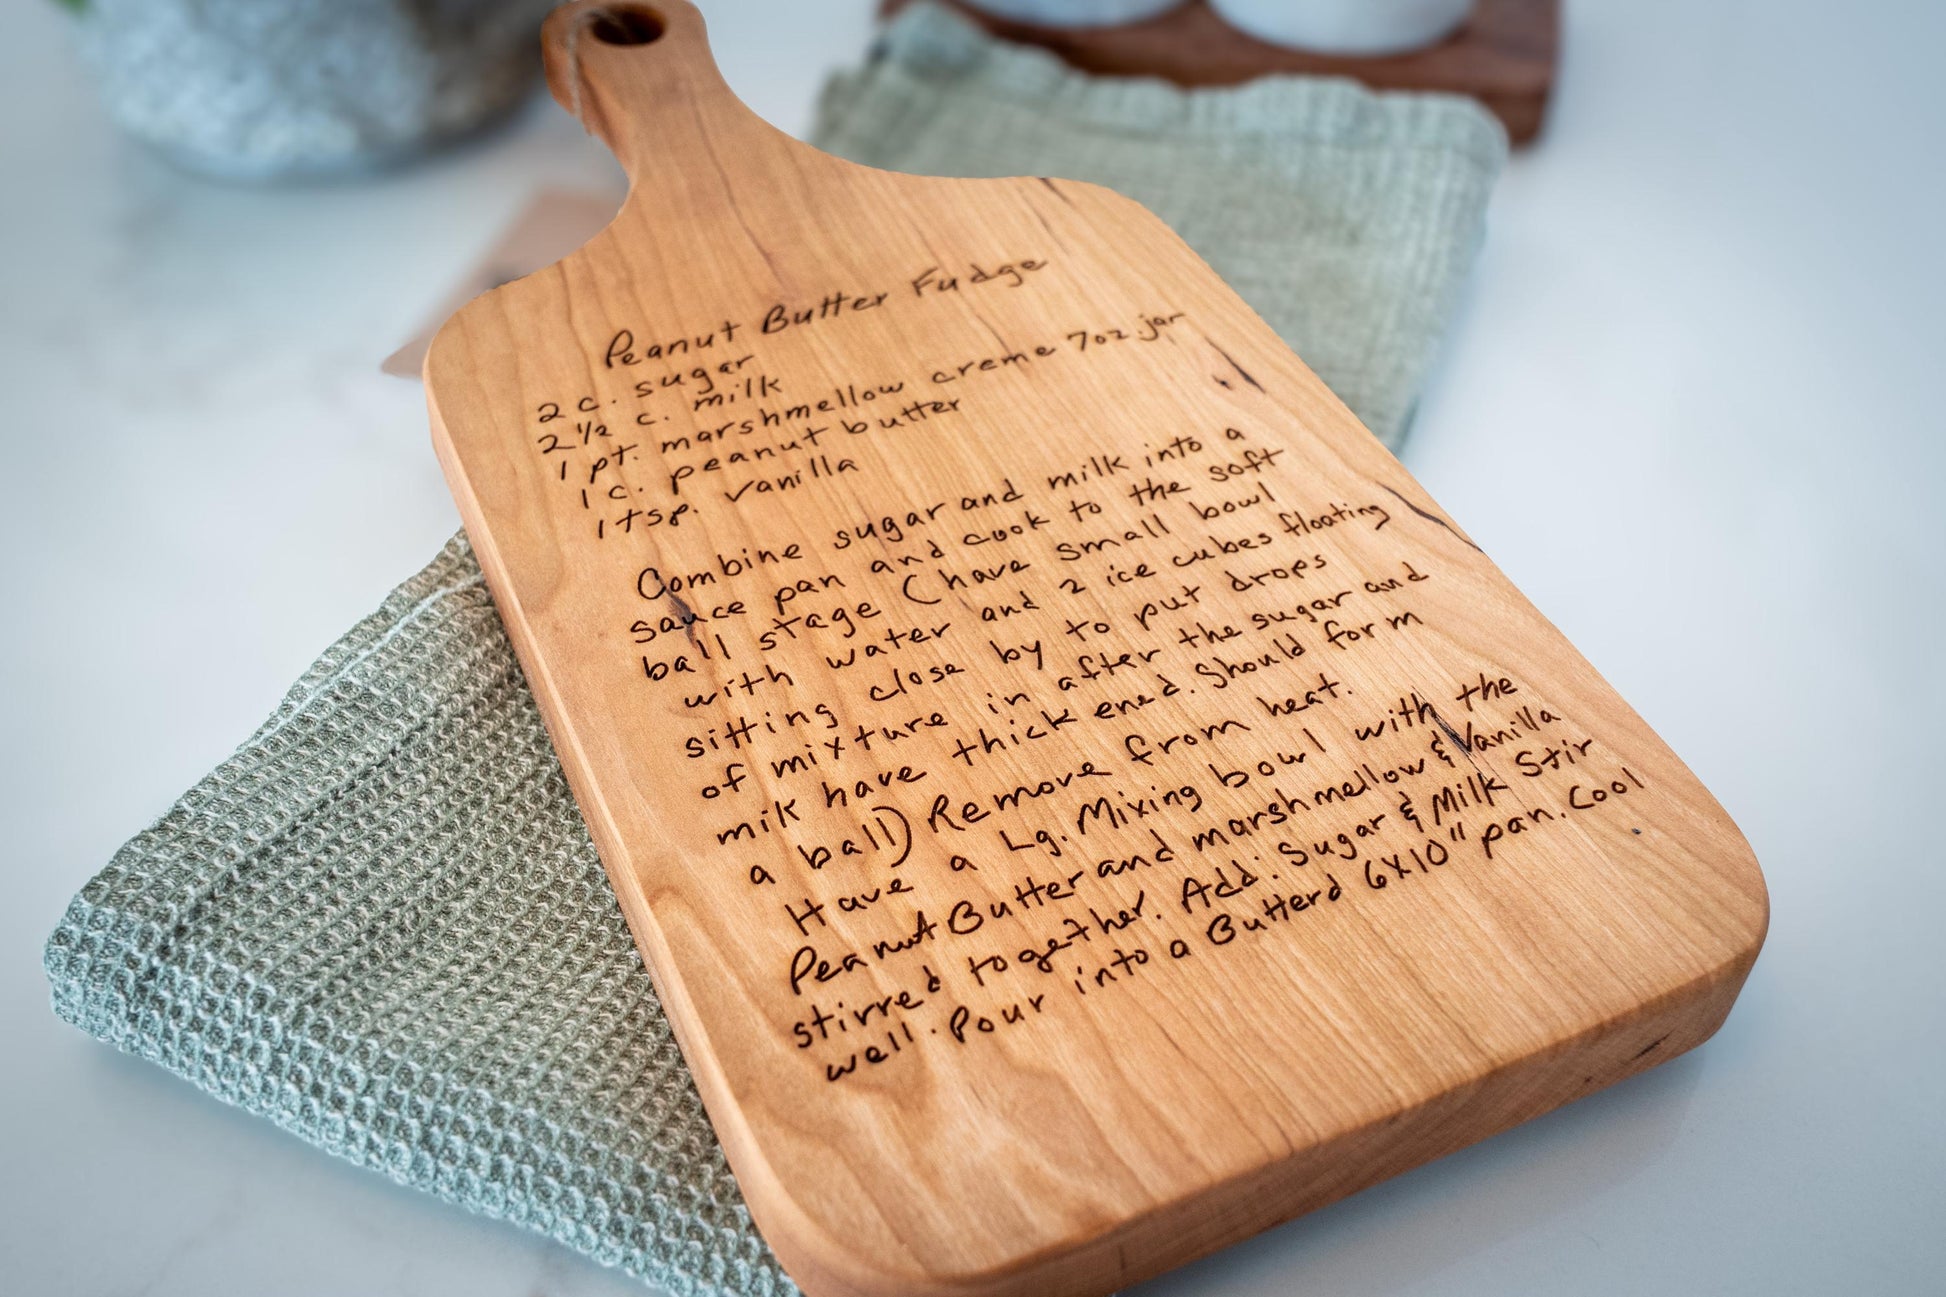 Peanut Butter Fudge
2 c. sugar
2 1/2 c. milk
1 pt. marshmellow creme 7oz. jar
1 c. peanut butter
1 tsp. vanilla
Combine sugar and milk into a
sauce pan and cook to the soft
ball stage (have small bowl
with water and 2 ice cubes floating
sitting close by to put drops
of mixture in after the sugar and
milk have thickened. Should form
a ball) Remove from heat.
Have a Lg. Mixing bowl with the
Peanut Butter and marshmellow & Vanilla
stirred together. Add: Sugar & Milk Stir
well. Pour into a Butterd 6x10" pan. Cool